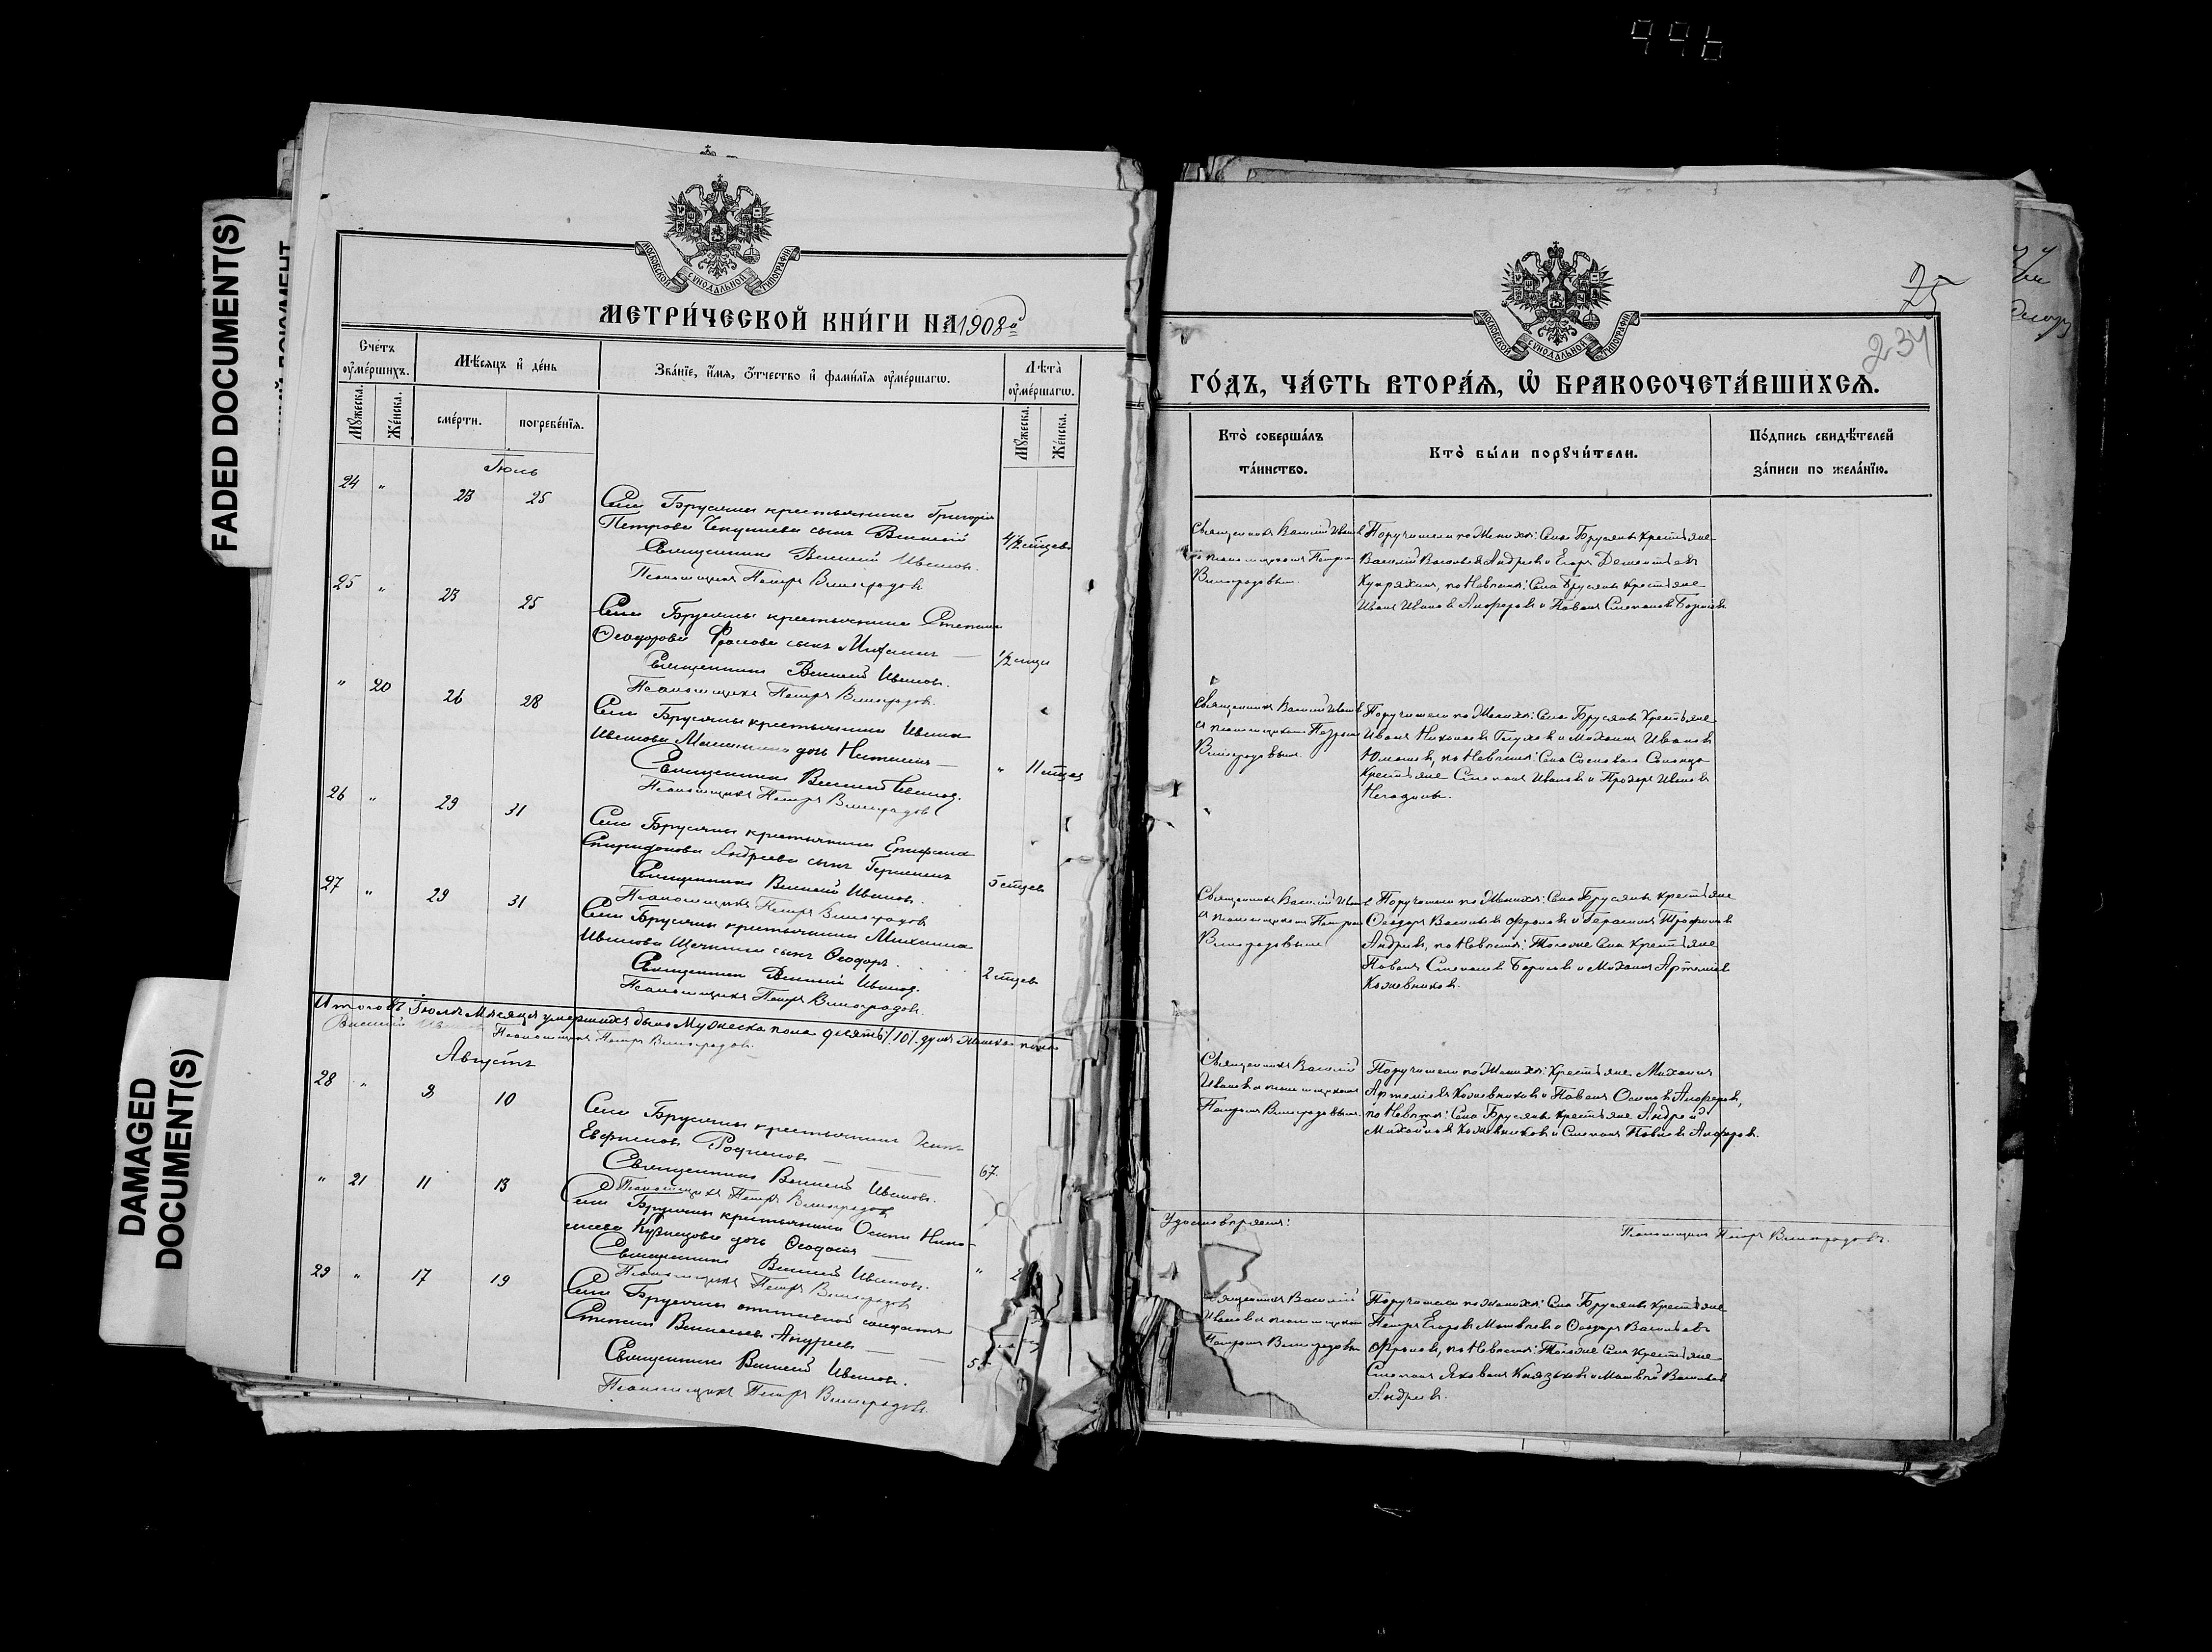 996
FADED DOCUMENT(S)
DAMAGED
DOCUMENT(S)
МОСКОВСКОЙ СѴНОДАЛЬНОЙ ТИПОГРАФІИ
МЕТРИ́ЧЕСКОЙ КНИ́ГИ НА 1908й
Сче́тъ
ᲂу҆ме́ршихъ.
Мѣ́сяцъ и҆ де́нь
Зва́нїе, и҆́мя, ѻ҆́тчество и҆ фами́лїя ᲂу҆ме́ршагѡ.
Лѣта̀
ᲂу҆ме́ршагѡ.
Мꙋ́жеска.
Же́нска.
сме́рти.
погребе́нїя.
Мꙋ́жеска.
Же́нска.
Іюль
24 " 23 25
Села Брусяны крестьянина Григорія
Петрова сынъ Василій
4½ мѣсяцевъ
Священникъ Василій Ивановъ.
Псаломщикъ Петръ Виноградовъ
25 " 23 25
Села Брусяны крестьянина Степана
Ѳеодорова Фролова сынъ Михаилъ
½ мѣсяца
Священникъ Василій Ивановъ.
Псаломщикъ Петръ Виноградовъ.
" 20 26 28
Села Брусяны крестьянина Ивана
Иванова дочь Наталія
" 11 мѣсяц
Священникъ Василій Ивановъ.
Псаломщикъ Петръ Виноградовъ
26 " 29 31
Села Брусяны крестьянина Епифана
Спиридонова Андреева сынъ Германъ
5 мѣсяцев
Священникъ Василій Ивановъ.
Псаломщикъ Петръ Виноградовъ
27 " 29 31
Села Брусяны крестьянина Михаила
Иванова сынъ Ѳеодоръ.
2 мѣсяцев
Священникъ Василій Ивановъ.
Псаломщикъ Петръ Виноградовъ.
Итого въ Іюлѣ мѣсяцѣ умершихъ было мужеска пола десять /10/ душъ женска
Василій Ивановъ Псаломщикъ Петръ Виноградовъ.
Августъ
28 " 8 10
Села Брусяны крестьянинъ Осипъ
Родіоновъ
67.
Священникъ Василій Ивановъ.
Псаломщикъ Петръ Виноградовъ
" 21 11 13
Села Брусяны крестьянина Осипа Нико-
лаева Кузнецова дочь Ѳеодосія
" 2
Священникъ Василій Ивановъ.
Псаломщикъ Петръ Виноградовъ
29 " 17 19
Села Брусяны отставной солдатъ
Степанъ Васильевъ Андреевъ
55
Священникъ Василій Ивановъ.
Псаломщикъ Петръ Виноградовъ.
75
234
МОСКОВСКОЙ СѴНОДАЛЬНОЙ ТИПОГРАФІИ
ГО́ДЪ, ЧА́СТЬ ВТОРА́Я, Ѡ҆ БРАКОСОЧЕТА́ВШИХСЯ.
Кто̀ соверша́лъ
та́инство.
Кто̀ бы́ли порꙋчи́тели.
По́дпись свидѣ́телей
за́писи по жела́нїю.
Священникъ Василій Ивановъ
съ псаломщикомъ Петромъ
Виноградовымъ.
Поручители по Женихѣ: Села Брусянъ крестьяне
Василій Васильевъ Андреевъ и Егоръ Дементьевъ
Купряхинъ, по Невѣстѣ: Села Брусянъ крестьяне
Иванъ Ивановъ Анфёровъ и Павелъ Степановъ Борисовъ
Священникъ Василій Ивановъ
съ псаломщикомъ Петромъ
Виноградовымъ.
Поручители по Женихѣ: Села Брусянъ крестьяне
Иванъ Николаевъ Глуховъ и Михаилъ Ивановъ
по Невѣстѣ: Села Сосноваго Солонца
крестьяне Степанъ Ивановъ и Прохоръ Ивановъ
Негодины.
Священникъ Василій Ивановъ
съ псаломщикомъ Петромъ
Виноградовымъ
Поручители по Женихѣ: Села Брусянъ крестьяне
Ѳеодоръ Васильевъ Фроловъ и Герасимъ Трофимовъ
Андреевъ, по Невѣстѣ: Тогоже Села крестьяне
Павелъ Степановъ Борисовъ и Михаилъ Артемьевъ
Кожевниковъ.
Священникъ Василій
Ивановъ съ псаломщикомъ
Петромъ Виноградовымъ.
Поручители по Женихѣ: крестьяне Михаилъ
Артемьевъ Кожевниковъ и Павелъ Осиповъ Анфёровъ,
по Невѣстѣ: Села Брусянъ крестьяне Андрей
Михайловъ Кожевниковъ и Степанъ Павловъ Анфёровъ.
Удостовѣряетъ:
Псаломщикъ Петръ Виноградовъ.
Священникъ Василій
Ивановъ съ псаломщикомъ
Петромъ Виноградовымъ
Поручители по Женихѣ: Села Брусянъ крестьяне
Петръ Егоровъ Матвѣевъ и Ѳеодоръ Васильевъ
Фроловъ, по Невѣстѣ: Тогоже Села крестьяне
Степанъ Яковлевъ Князьковъ и Матвѣй Васильевъ
Андреевъ.